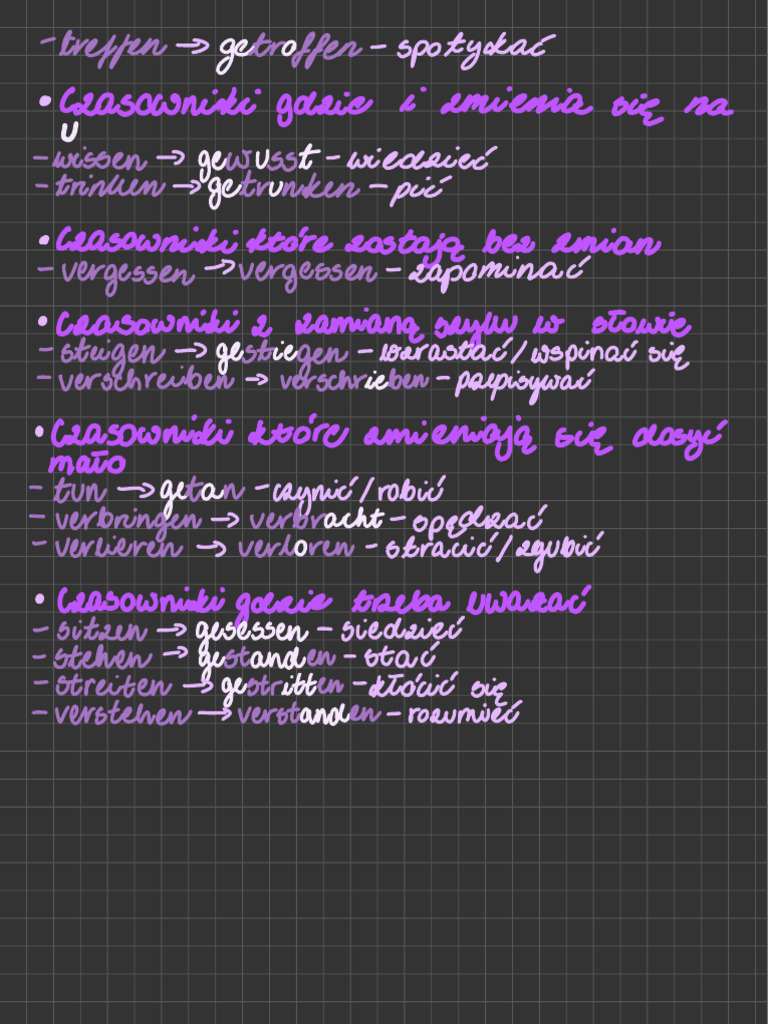 - treffen → getroffen - spotykać
• Czasowniki gdzie i zmienia się na
u
- wissen → gewusst - wiedzieć
- trinken → getrunken - pić
• Czasowniki które zostają bez zmian
- vergessen → vergessen - zapominać
• Czasowniki z zamianą szyku w słowie
- steigen → gestiegen - wzrastać / wspinać się
- verschreiben → verschrieben - przepisywać
• Czasowniki które zmieniają się dosyć
mało
- tun → getan - czynić / robić
- verbringen → verbracht - spędzać
- verlieren → verloren - stracić / zgubić
• Czasowniki gdzie trzeba uważać
- sitzen → gesessen - siedzieć
- stehen → gestanden - stać
- streiten → gestritten - kłócić się
- verstehen → verstanden - rozumieć